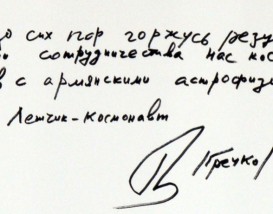 до сих пор горжусь резу
сотрудничества нас кос
в с армянскими астрофизи
Летчик-космонавт
Гречко